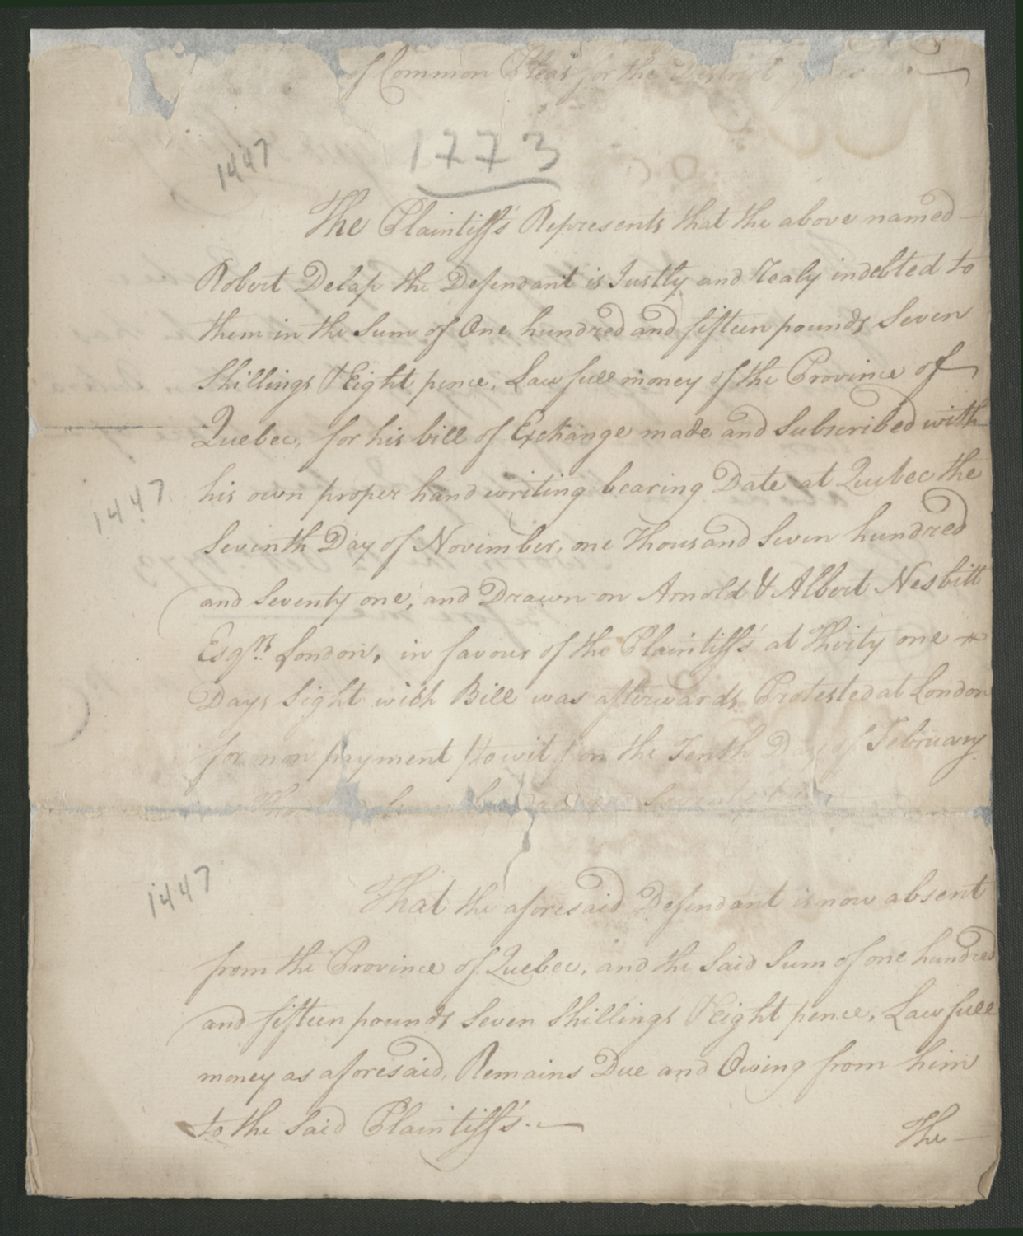 of Common Pleas for the District
1773
1447
The Plaintiffs Represents that the above named
Robert Delap the Defendant is Justly and realy indebted to
them in the Sum of One hundred and fifteen pounds Seven
Shillings & Eight pence, Lawfull money of the Province of
Quebec, for his bill of Exchange made and Subscribed with
his own proper hand writing bearing Date at Quebec the
1447
Seventh Day of November, one Thousand Seven hundred
and Seventy one, and Drawn on Arnold & Albert Nesbitt
Esqrs. London, in favour of the Plaintiffs at Thirty one
Days Sight wich Bill was afterwards Protested at London
for non payment (to wit) on the Tenth Day of February
1447
That the aforesaid Defendant is now absent
from the Province of Quebec, and the Said Sum of one hundred
and fifteen pounds Seven Shillings & Eight pence, Lawfull
money as aforesaid, Remains Due and Owing from him
to the Said Plaintiff's.
The